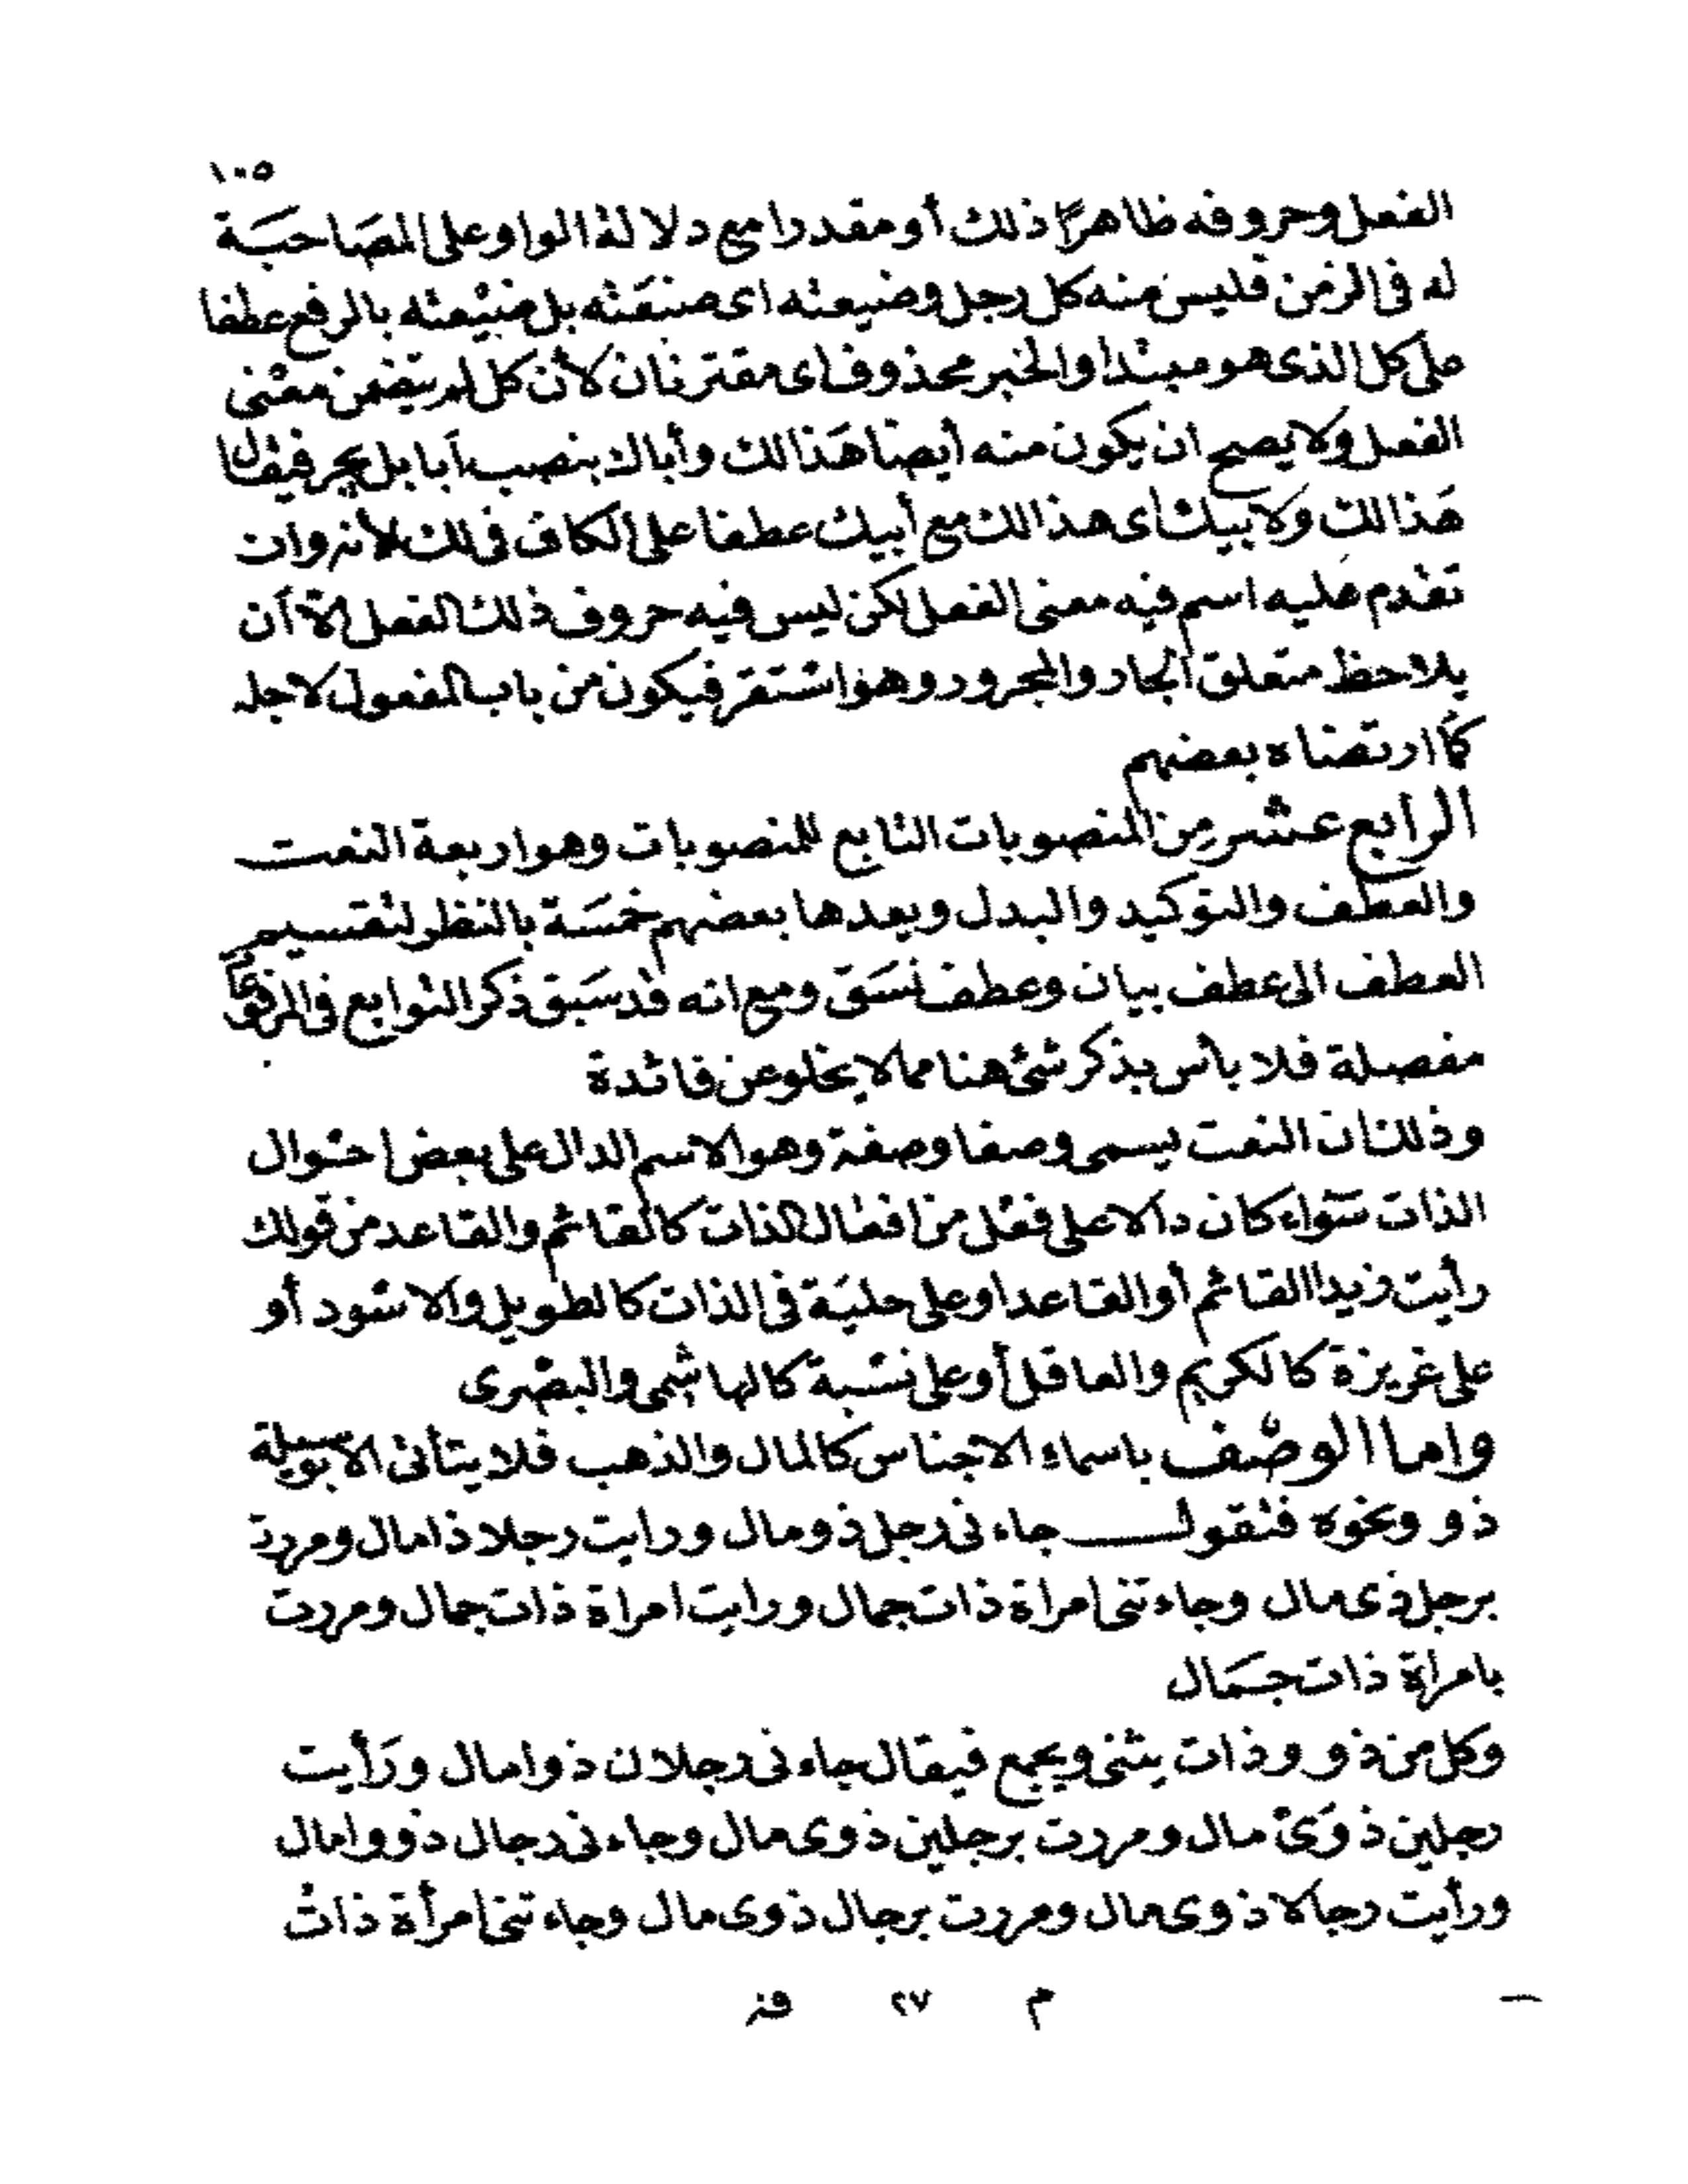 ١٠٥
الفعل وحروفه ظاهرًا ذلك أو مقدرا مع دلالة الواو على المصَاحبَة
له فى الزمن فليس منه كل رجل وضيعته اى صنعَته بل ضيْعته بالرفع عطفا
على كل الذى هو مبتدا والخبر محذوف اى مقترنان لأن كل لم يتضمن معْنى
الفعل ولا يصح ان يكون منه أيضا هَذا لك وأباك بنصب أبا بل يجر فيقال
هَذا لك ولابيك اى هذا لك مع أبيك عطفا على الكاف فى لك لأنه وان
تقدم عليه اسم فيه معنى الفعل لكن ليس فيه حروف ذلك الفعل الا أن
يلاحظ متعلق الجار والمجرور وهو استقر فيكون من باب المفعول لاجله
كما ارتضاه بعضهم
الرابع عشر مِن المنصوبات التابع للمنصوبات وهو اربعة النعت
والعطف والتوكيد والبدل ويعدها بعضهم خمسَة بالنظر لتقسيم
العطف الى عطف بيان وعطف نسَق ومع انه قد سَبق ذكر التوابع فى المرفوعات
مفصلة فلا بأس بذكر شئ هنا مما لا يخلو عن فائدة
وذلك ان النعت يسمى وصفا وصفة وهو الاسم الدال على بعض احوال
الذات سَواء كان دالا على فعل من افعال الذات كالقائم والقاعد من قولك
رأيت زيدا القائم أو القاعد او على حليَة فى الذات كالطويل والاسود أو
على غريزة كالكريم والعاقل أو على نسْبة كالهاشمى والبصْرى
واما الوصْف باسماء الاجناس كالمال والذهب فلا يتأتى الا بوسيلة
ذو ونحوه فتقول جاءنى رجل ذو مال ورايت رجلا ذا مال ومررت
برجل ذى مال وجاءتنى امراة ذات جمال ورايت امراة ذات جمال ومررت
بامراة ذات جمَال
وكل من ذو وذات يثنى ويجمع فيقال جاءنى رجلان ذوا مال ورَأيت
رجلين ذوَىْ مال ومررت برجلين ذوى مال وجاءنى رجال ذوو امال
ورأيت رجالا ذوى مال ومررت برجال ذوى مال وجاءتنى امرأة ذات
م ٢٧